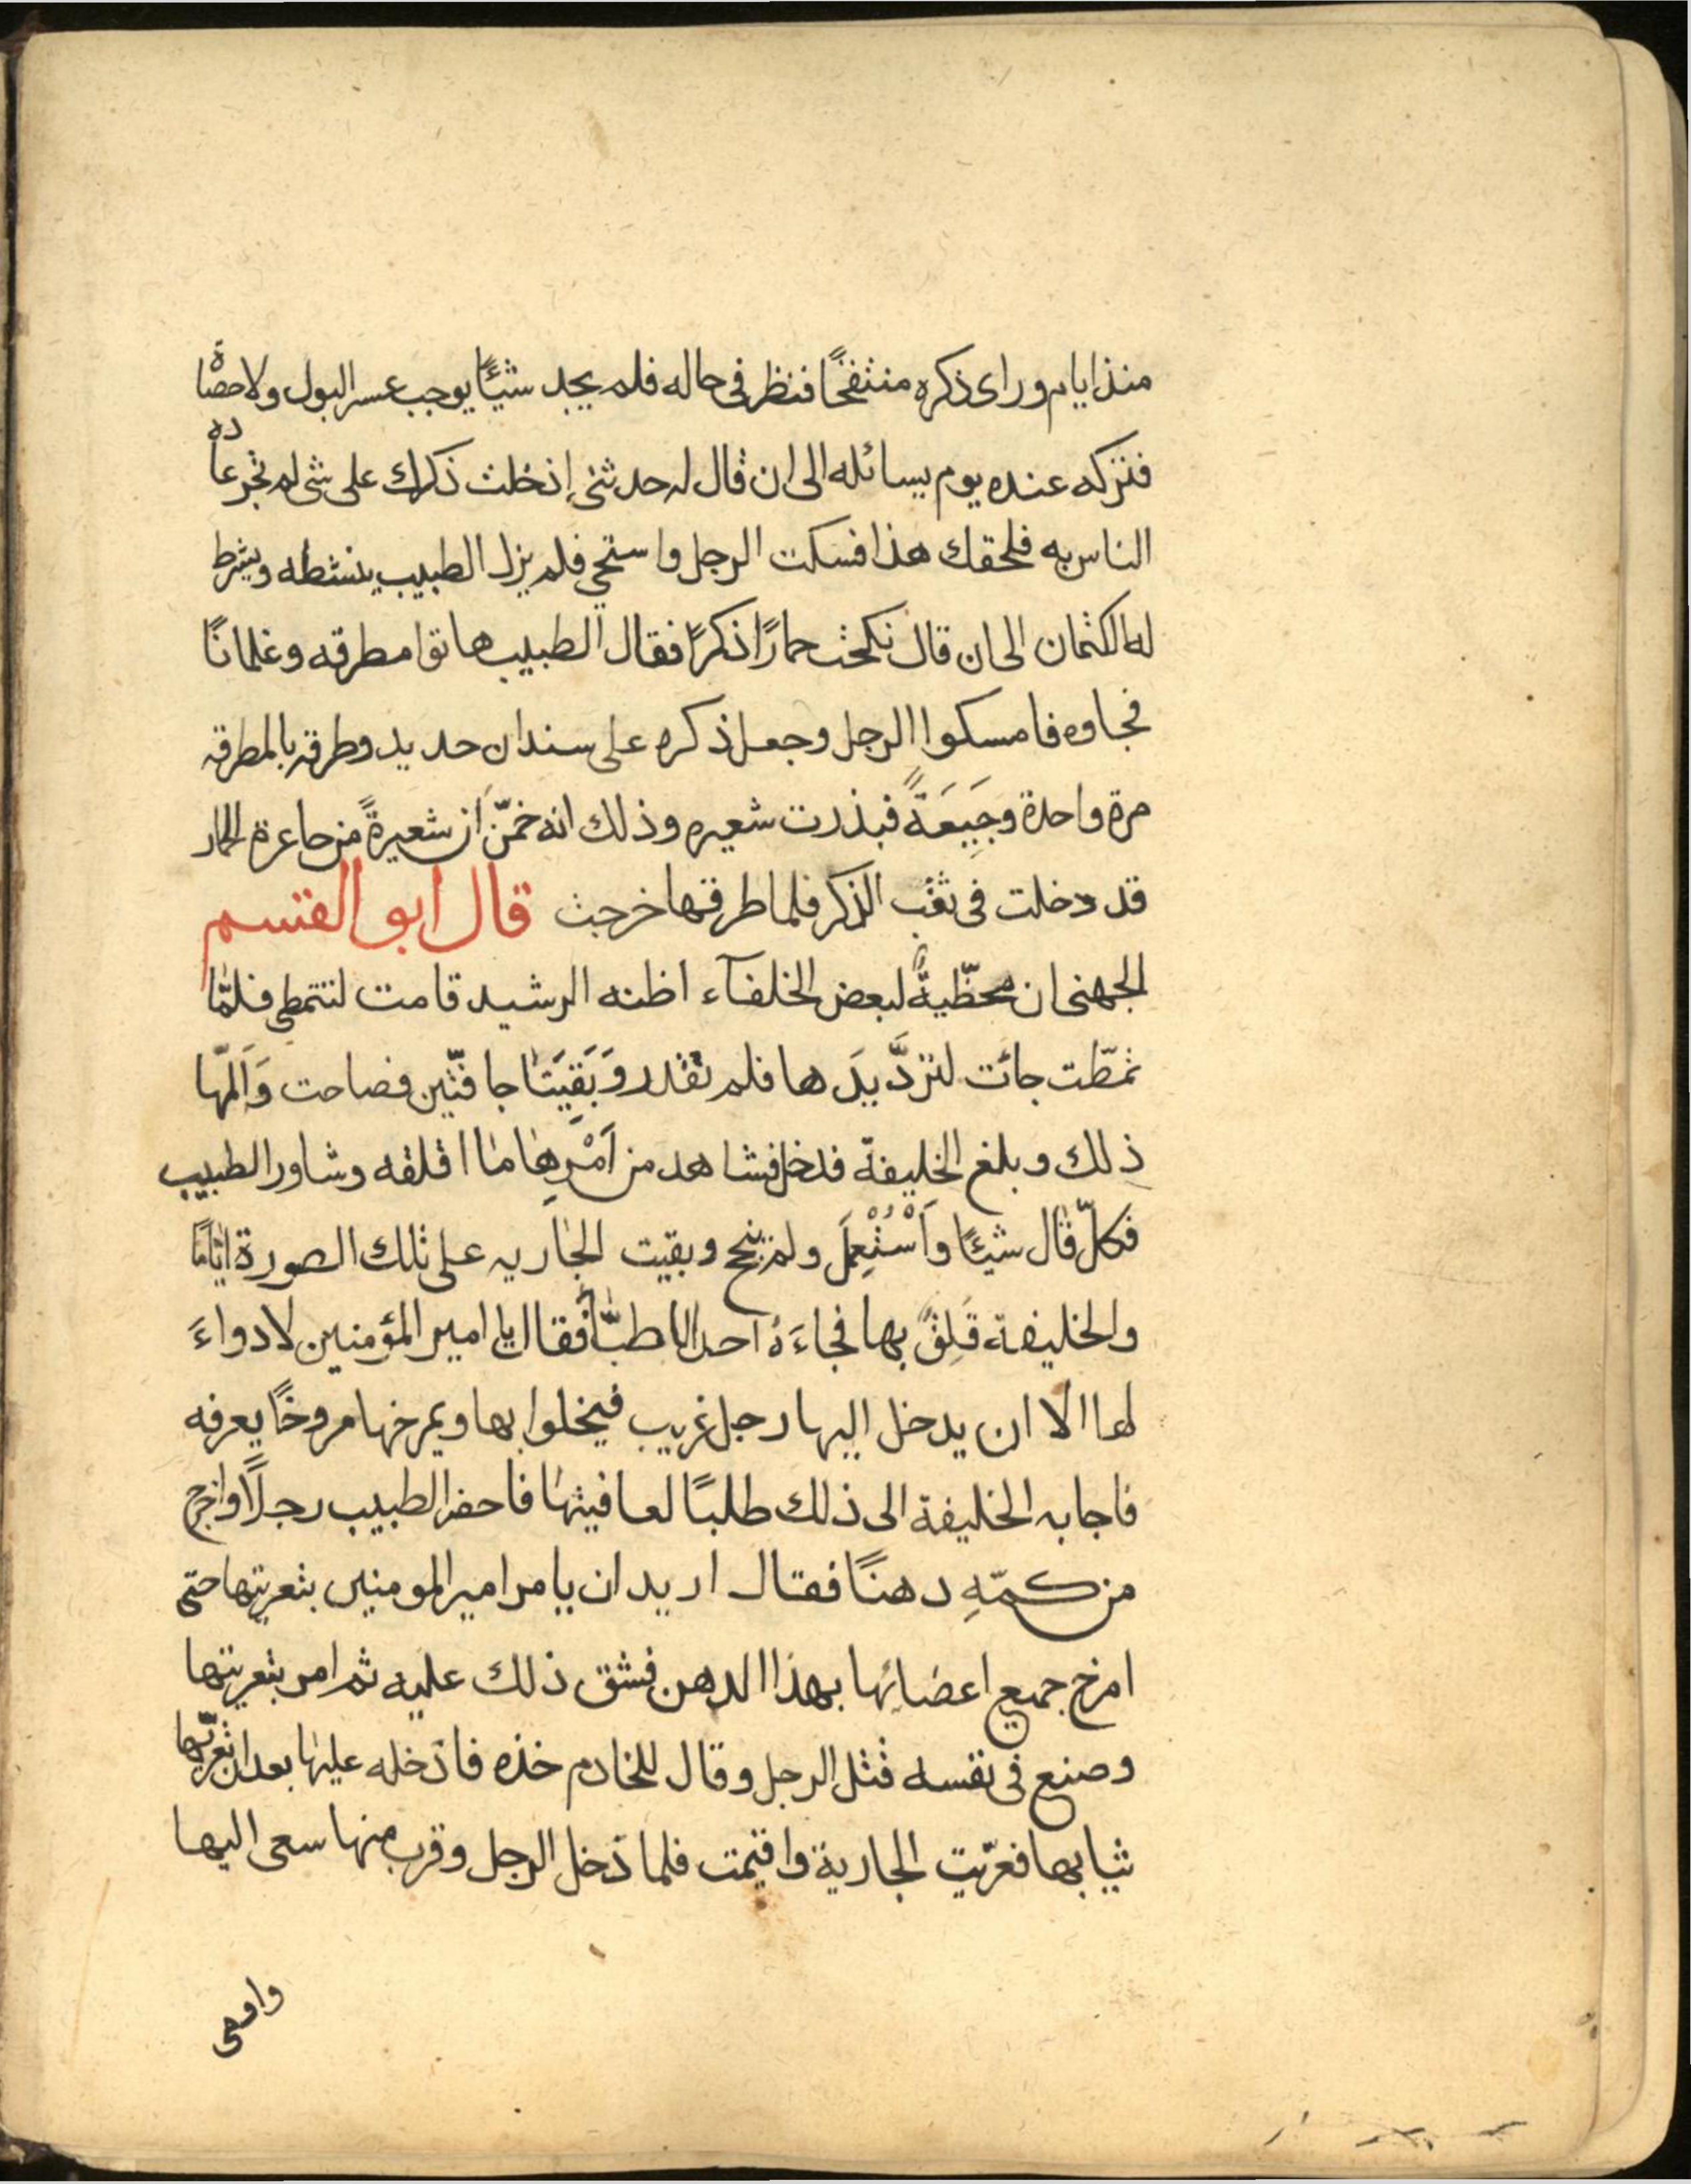 منذ ايام وراى ذكره منتفخًا فنظر فى حاله فلم يجد شيئًا يوجب عسر البول ولا حصاة
فتركه عنده يوم يسائله الى ان قال له حدثنى اذخلت ذكرك على شى لم تجر عادة
الناس به فلحقك هذا فسكت الرجل واستحي فلم يزل الطبيب ينشطه ويشرط
له الكتمان الى ان قال نكحت حمارًا ذكرًا فقال الطبيب هاتوا مطرقه وغلمانًا
فجاوه فامسكوا الرجل وجعل ذكره على سندان حديد وطرقه بالمطرقه
مرة واحدة وجَيعَةً فبذرت شعيره وذلك انه خمّن ان شعيرةً من جاعرة الحمار
قد دخلت فى ثقب الذكر فلما طرقها خرجت قال ابو القسم
الجهنى ان محظّيةً لبعض الخلفآء اظنه الرشيد قامت لتتمطى فلمّا
تمطّت جائت لتردَّ يدَها فلم تقدر وَبَقيَتَا جافتّين فصاحت وَالمّها
ذلك وبلغ الخليفة فدخل فشاهد من اَمْرِها ما اقلقه وشاور الطبيب
فكلّ قال شيئًا وَاَسْتُعْمِلَ ولم ينجح وبقيت الجاريه على تلك الصورة ايّامًا
والخليفة قَلِقٌ بها فجاءَهُ احد الاطبّاُ فقال يا امير المؤمنين لا دواءَ
لها الا ان يدخل اليها رجل غريب فيخلوا بها ويمرخها مروخًا يعرفه
فاجابه الخليفة الى ذلك طلبًا لعافيتها فاحضر الطبيب رجلًا واخرج
من كمّهِ دهنًا فقال اريد ان يامر امير المومنين بتعريتها حتى
امرخ جميع اعضائها بهذا الدهن فشق ذلك عليه ثم امر بتعريتها
وصنع فى نفسه قتل الرجل وقال للخادم خذه فادخله عليها بعد ان تعرّيها
ثيابها فعرّيت الجارية واقيمت فلما دخل الرجل وقرب منها سعى اليها
واومى